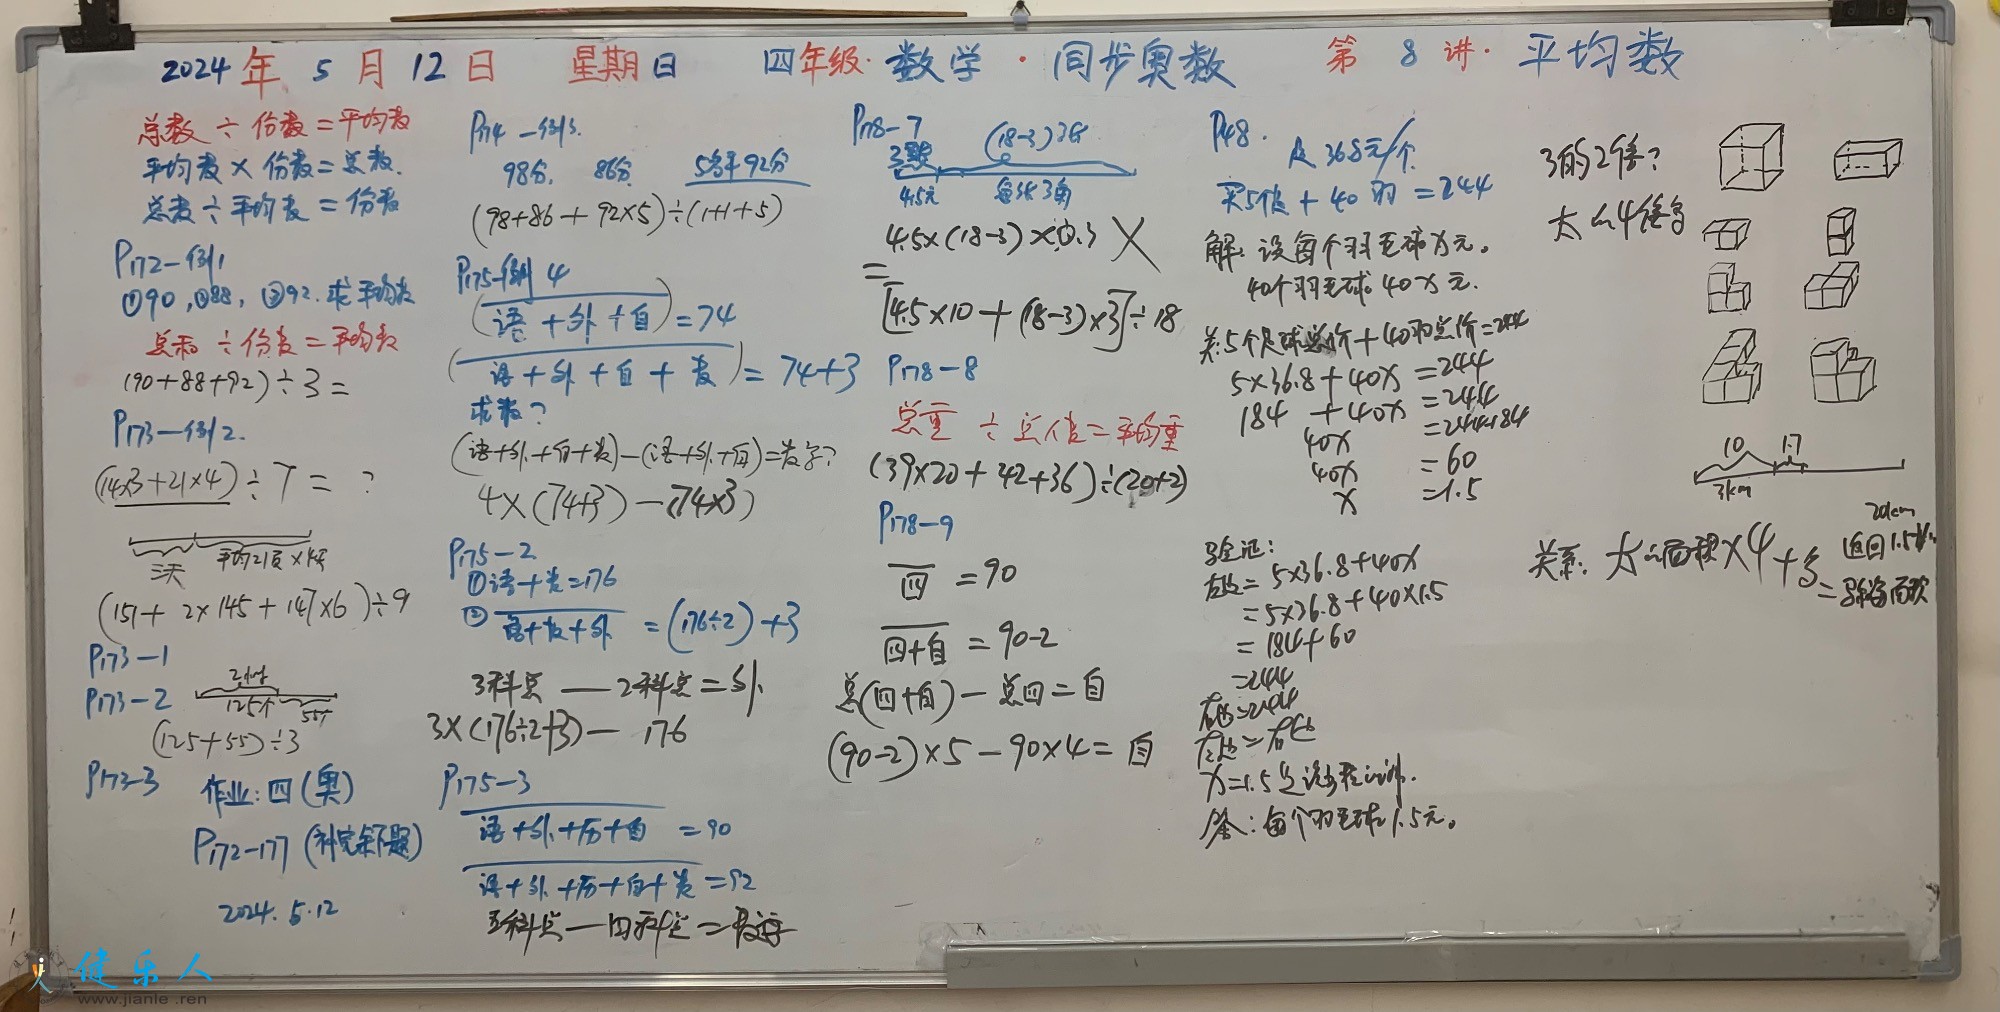 2024年5月12日 星期日 四年级·数学·同步奥数 第8讲·平均数
总数÷份数=平均数
平均数×份数=总数.
总数÷平均数=份数
P172-例1
①90,②88,③92.求平均数
总和÷份数=平均数
(90+88+92)÷3=
P173-例2.
(14×3+21×4)÷7=?
三天 平均21页×4天
(151+2×145+147×6)÷9
P173-1
P173-2
125个 55个
(125+55)÷3
P173-3
作业:四(奥)
P172-177(补完余下题)
2024.5.12
P174-例3.
98分. 86分 5名平92分
(98+86+92×5)÷(1+1+5)
P175-例4
(语+外+自)=74
(语+外+自+数)=74+3
求数?
(语+外+自+数)-(语+外+自)=数学?
4×(74+3)-(74×3)
P175-2
①语+数=176
②语+数+外=(176÷2)+3
3科总—2科总=外
3×(176÷2+3)-176
P175-3
语+外+历+自=90
语+外+历+自+数=92
五科总—四科总=数学
P178-7
(18-3)
4.5元
4.5×(18-3)×0.3 ×
=
[4.5×10+(18-3)×3]÷18
P178-8
总重÷总值=平均重
(39×20+42+36)÷(20+2)
P178-9
四=90
四+自=90-2
总(四+自)-总四=自
(90-2)×5-90×4=自
P48.
足36.8元/个
买5个足+40羽=244
解:设每个羽毛球x元。
40个羽毛球40x元.
关:5个足球总价+40羽总价=244
5×36.8+40x=244
184+40x=244
40x=244-184
40x=60
x=1.5
验证:
左边=5×36.8+40x
=5×36.8+40×1.5
=184+60
=244
右边=244
左边=右边
x=1.5是该方程的解.
答:每个羽毛球1.5元。
3的2倍?
大的4倍多
10 1.7
3km
20km
返回1.5
关系:大的面积×4+3=